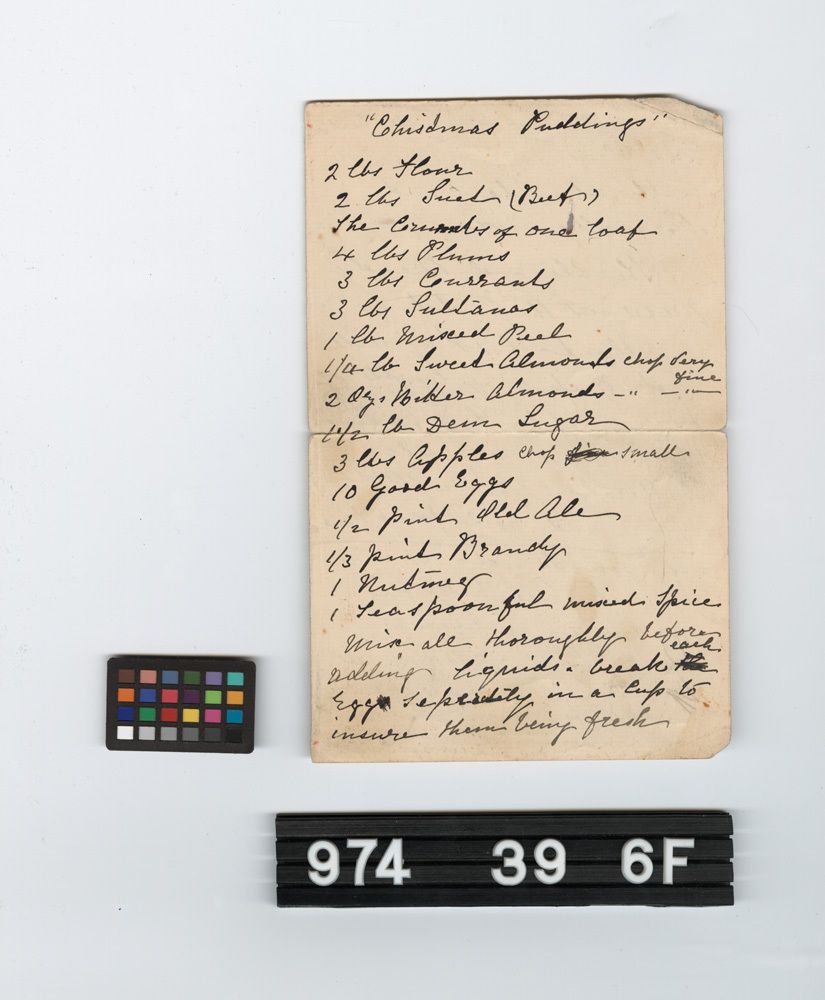 "Chisdmas Puddings"
2 lbs Flour
2 lbs Suet (Beef)
The Crumbs of one loaf
4 lbs Plums
3 lbs Currants
3 lbs Sultanas
1 lb Mixed Peel
1/4 lb Sweet Almonds chop very fine
2 Ozs Bitter Almonds -"- -"-
1 1/2 lb Dem Sugar
3 lbs Apples chop small
10 Good Eggs
1/2 Pint Old Ale
1/3 pint Brandy
1 Nutmeg
1 Teaspoonful mixed Spice
Mix all thoroughly before
adding liquids. break each
Egg seperatly in a Cup to
insure them being fresh
974 39 6F